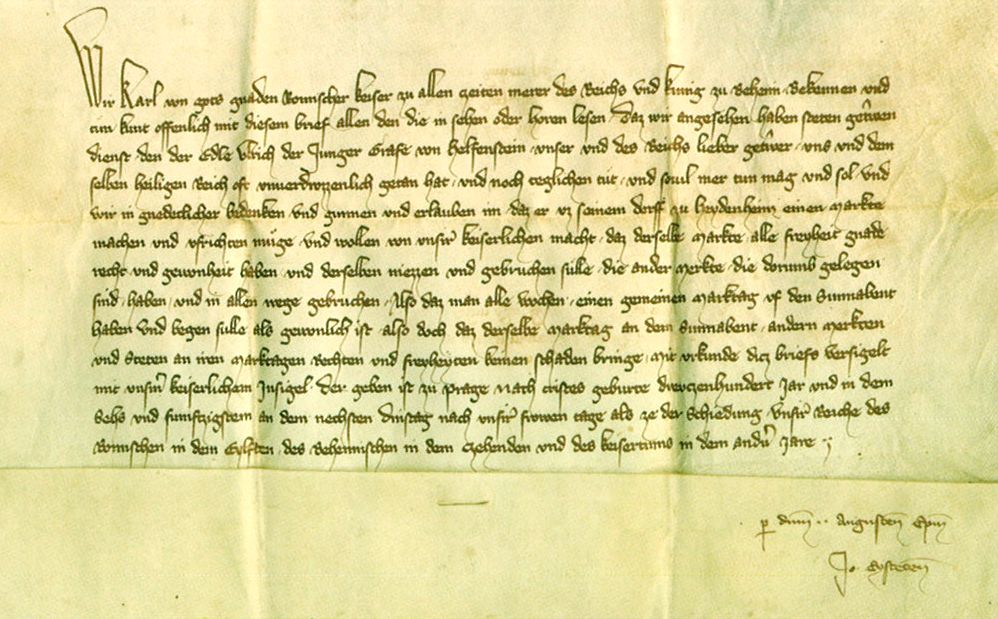 Wir Karl von gots gnaden Romischer keiser zu allen zeiten merer des Reichs und kunig zu Beheim Bekennen und
tun kunt offenlich mit diesem brief allen den die in sehen oder horen lesen Daz wir angesehen haben steten getrwen
dienst den der Edle Ulrich der Junger Grafe von Helfenstein unser und des Reichs lieber getrwer uns und dem
selben heiligen Reich oft unverdrozzenlich getan hat und noch teglichen tut und souil mer tun mag und sol und
wir in gnedeclicher bedenken und gunnen und erlauben im daz er uz seinem dorff zu heydenheim einen Markte
machen und ufrichten muge und wollen von unsir keiserlichen macht daz derselbe Markte alle freyheit gnade
recht und gewonheit haben und derselben niezzen und gebruchen sulle die ander merkte die dorumb gelegen
sind haben und in allen wege gebruchen Also daz man alle wochen einen gemeinen Marktag uf den Sunnabent
haben und begen sulle als gewonlich ist also doch daz derselbe Marktag an dem Sunnabent andern Merkten
und Steten an iren Marktagen Rechten und freyheyten keinen schaden bringe Mit urkunde dicz briefs versigelt
mit unsirm keiserlichem Insigel Der geben ist zu Prage Nach cristes geburte drewczenhundert Jar und in dem
Sehs und funftzigstem an dem nechsten dinstag nach unsir frowen tage als ze der Schiedung Unsir Reiche des
Romischen in dem Eylften des Behemischen in dem Czehenden und des keisertums in dem andern Jare
p dnm .. Augusten Epm
Jo Eysteten